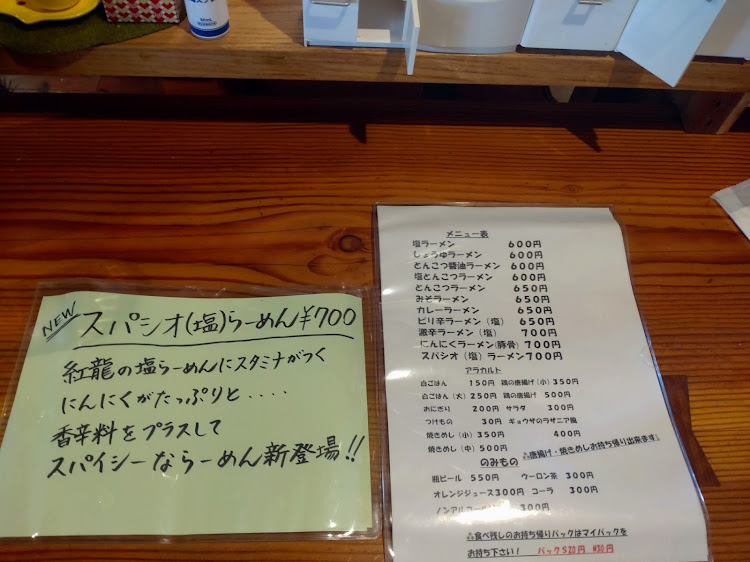 NEW
スパシオ(塩)らーめん¥700
紅龍の塩らーめんにスタミナがつく
にんにくがたっぷりと‥‥
香辛料をプラスして
スパイシーならーめん新登場!!
メニュー表
塩ラーメン 600円
しょうゆラーメン 600円
とんこつ醤油ラーメン 600円
塩とんこつラーメン 600円
とんこつラーメン 650円
みそラーメン 650円
カレーラーメン 650円
ピリ辛ラーメン(塩) 650円
激辛ラーメン(塩) 700円
にんにくラーメン(豚骨) 700円
スパシオ(塩)ラーメン700円
アラカルト
白ごはん 150円 鶏の唐揚げ(小) 350円
白ごはん(大) 250円 鶏の唐揚げ 500円
おにぎり 200円 サラダ 300円
つけもの 30円 ギョウザのラザニア風
焼きめし(小) 350円 400円
焼きめし(中) 500円 ⁂唐揚げ・焼きめしお持ち帰り出来ます!
のみもの
瓶ビール 550円 ウーロン茶 300円
オレンジジュース300円 コーラ 300円
ノンアルコール 300円
⁂食べ残しのお持ち帰りパックはマイパックを
お持ち下さい! パックS20円 M30円